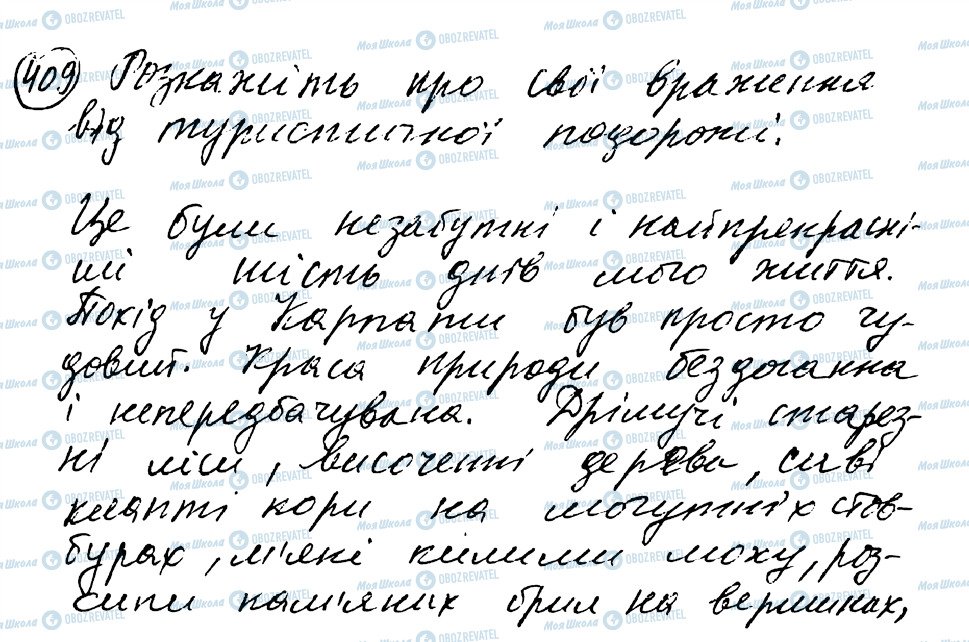 409 Розкажіть про свої враження
від туристичної подорожі.
Це були незабутні і найпрекрасні-
ші шість днів мого життя.
Похід у Карпати був просто чу-
довий. Краса природи бездоганна
і непередбачувана. Дрімучі старез-
ні ліси, височенні дерева, сиві
клапті кори на могутніх стов-
бурах, м'які килими моху, роз-
сипи кам'яних брил на вершинах,
МояШкола OBOZREVATEL